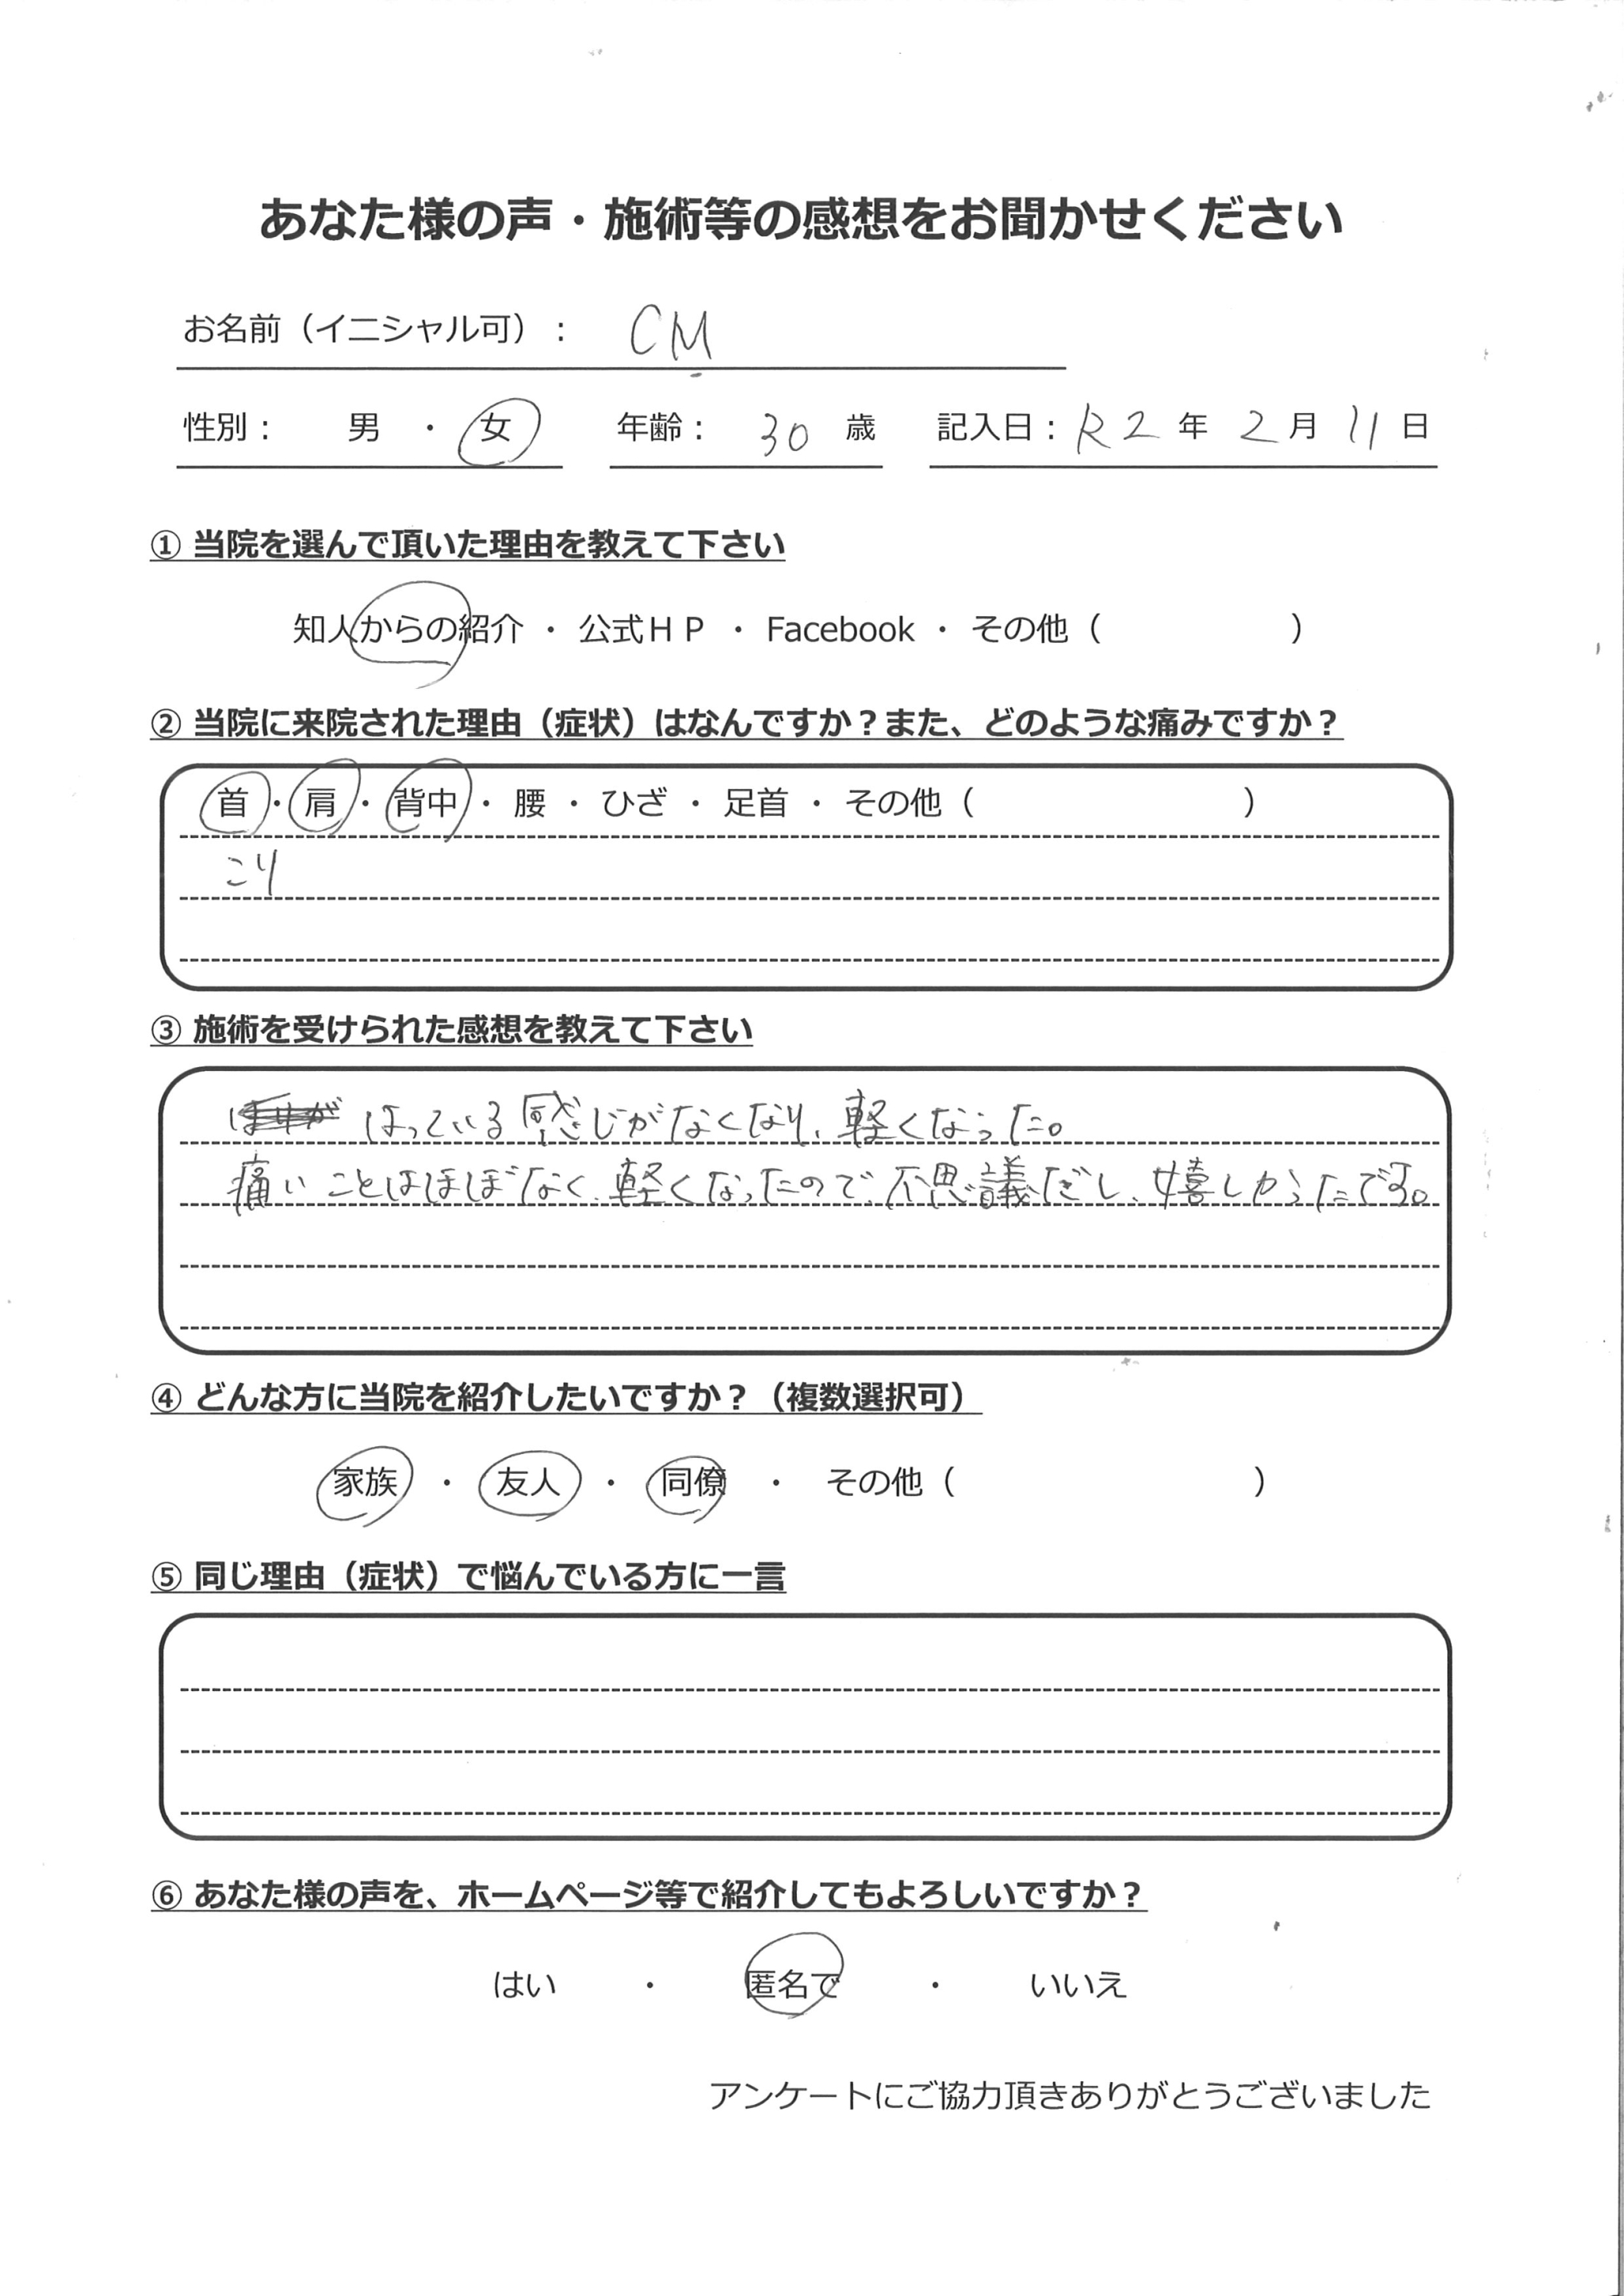 あなた様の声・施術等の感想をお聞かせください
お名前（イニシャル可）： CM
性別： 男 ・ 女 年齢： 30 歳 記入日： R2 年 2 月 11 日
① 当院を選んで頂いた理由を教えて下さい
知人からの紹介 ・ 公式ＨＰ ・ Facebook ・ その他（ ）
② 当院に来院された理由（症状）はなんですか？また、どのような痛みですか？
首 ・ 肩 ・ 背中 ・ 腰 ・ ひざ ・ 足首 ・ その他（ ）
こり
③ 施術を受けられた感想を教えて下さい
はっている感じがなくなり、軽くなった。
痛いことはほぼなく、軽くなったので、不思議だし、嬉しかったです。
④ どんな方に当院を紹介したいですか？（複数選択可）
家族 ・ 友人 ・ 同僚 ・ その他（ ）
⑤ 同じ理由（症状）で悩んでいる方に一言
⑥ あなた様の声を、ホームページ等で紹介してもよろしいですか？
はい ・ 匿名で ・ いいえ
アンケートにご協力頂きありがとうございました